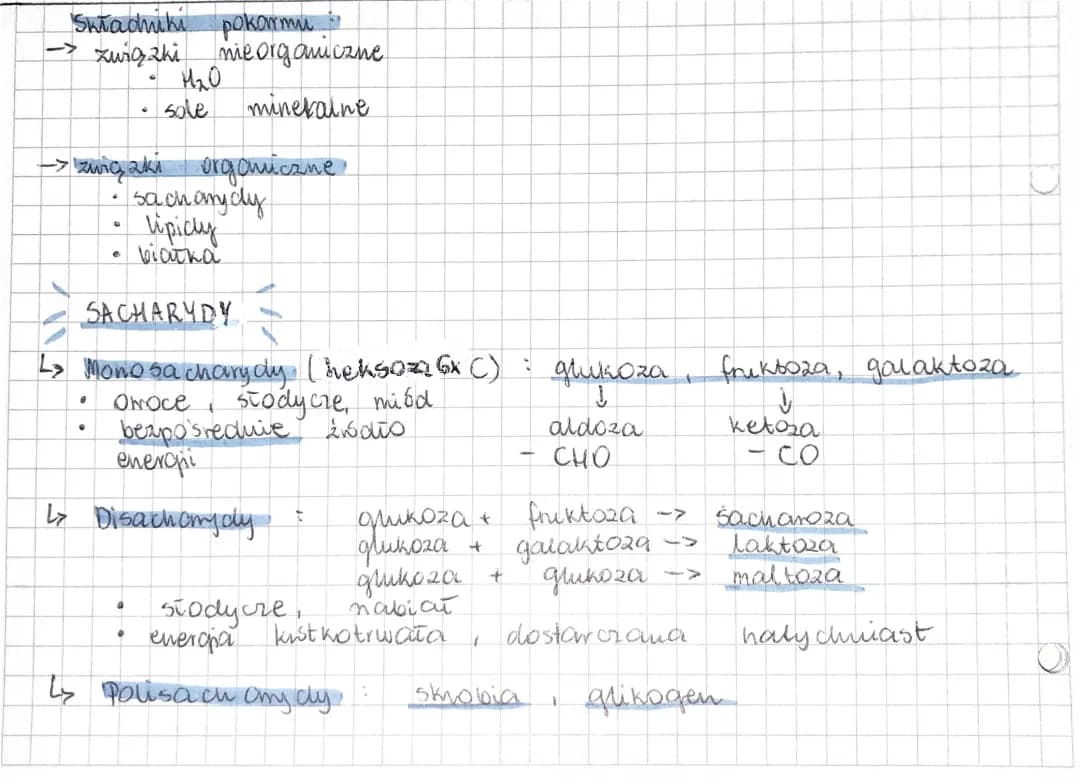 Składniki pokarmu :
-> związki nieorganiczne
• H₂O
• sole mineralne
-> związki organiczne
• sacharydy
• lipidy
• białka
SACHARYDY
↳ Monosacharydy (heksoza 6x C) : glukoza, fruktoza, galaktoza
• owoce, słodycze, miód ↓ ↓
• bezpośrednie źródło aldoza ketoza
energii - CHO - CO
↳ Disacharydy : glukoza + fruktoza -> sacharoza
glukoza + galaktoza -> laktoza
glukoza + glukoza -> maltoza
• słodycze, nabiał
• energia krótkotrwała, dostarczana natychmiast
↳ Polisacharydy : skrobia, glikogen